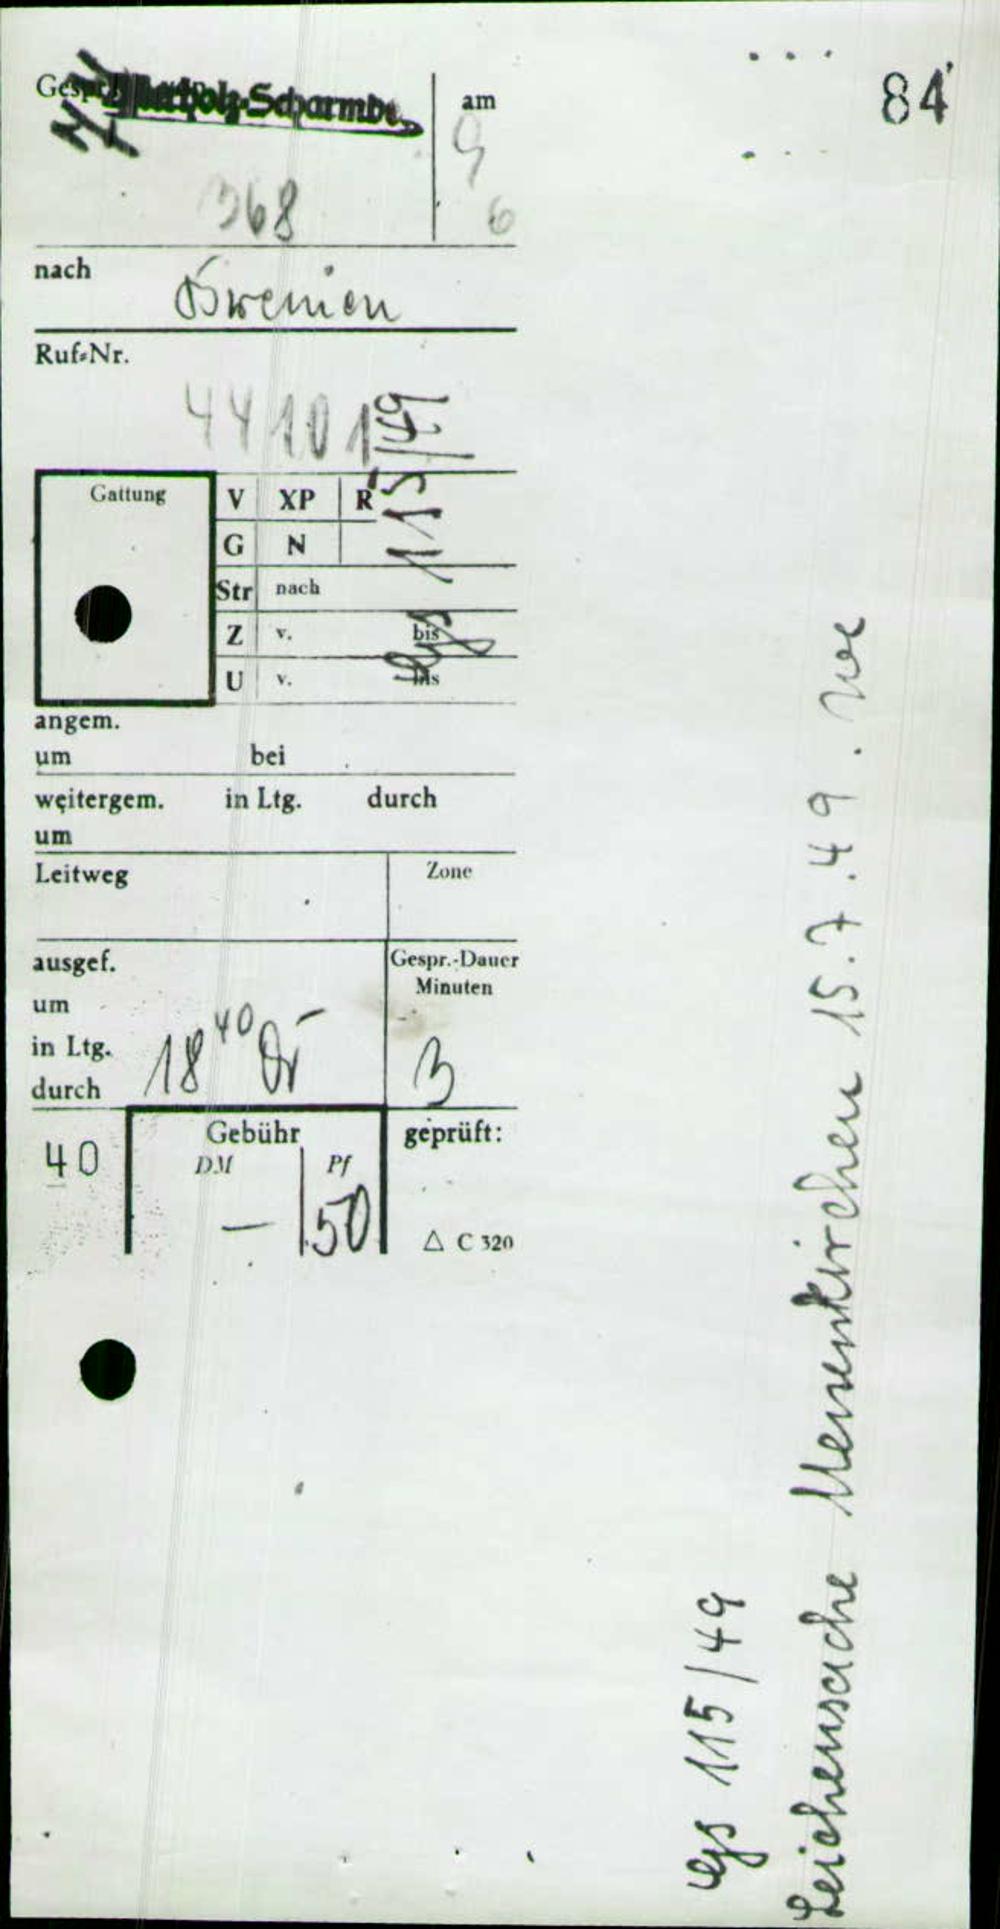 84
Gespr. Osterholz-Scharmbe
am
9
6
368
nach
Bremen
Ruf-Nr.
44101
Gattung
V XP R
G N
Str nach
Z v. bis
U v. bis
Gs 115/49
angem.
um bei
weitergem. in Ltg. durch
um
Leitweg
Zone
ausgef.
um
in Ltg.
durch
18 40
Gespr.-Dauer
Minuten
3
40
Gebühr
DM Pf
— 50
geprüft:
△ C 320
Gs 115/49
Leichensache Meyenkirchen 15.7.49.